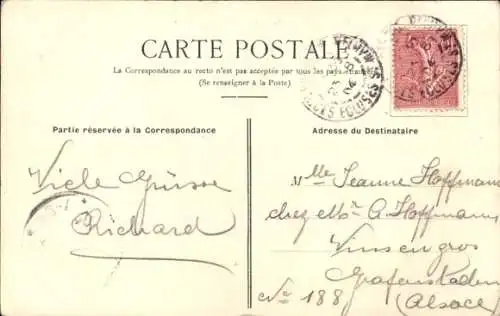 CARTE POSTALE
La Correspondance au recto n'est pas acceptée par tous les pays étrangers
(Se renseigner à la Poste)
Partie réservée à la Correspondance
Viele Grüsse
Richard
Adresse du Destinataire
Mlle Jeanne Hoffmann
chez Mr A Hoffmann
Vins en gros
Grafenstaden
No 188
(Alsace)